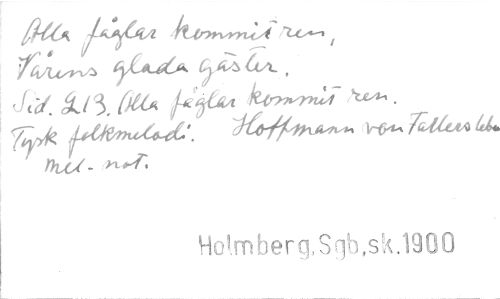 Alla fåglar kommit ren,
Vårens glada gäster.
Sid. 213. Alla fåglar kommit ren.
Tysk folkmelodi. Hoffmann von Fallersleben
mel. not.
Holmberg, Sgb, sk. 1900